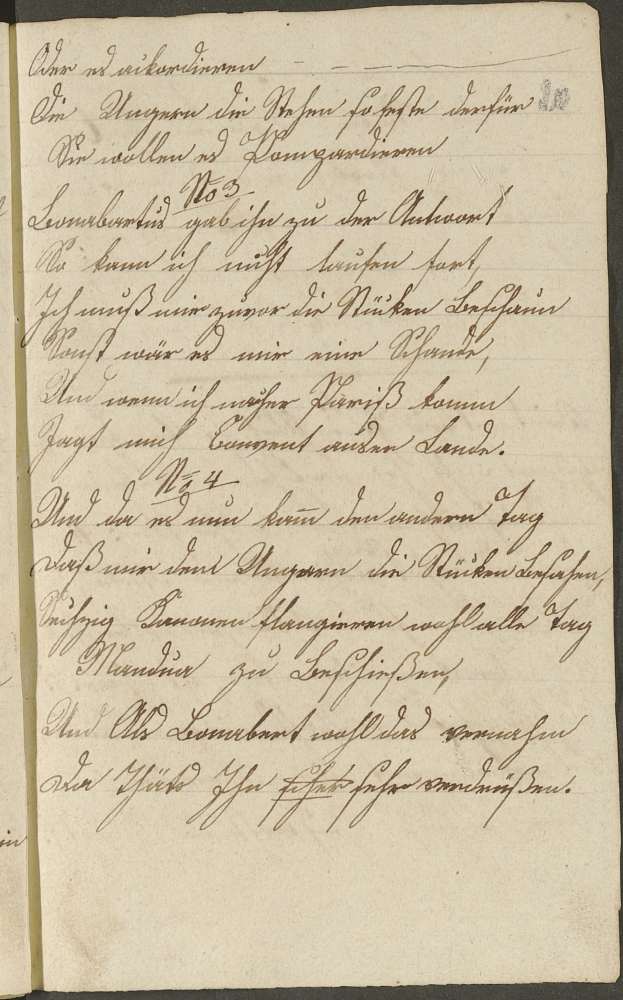 Oder es ackordieren
Die Ungern die Stehen so feste derfür
Sie wollen es Pompardieren
No 3
Bonabartus gab ihn zu der Antwort
So kann ich nicht laufen fort,
Ich muß mir zuvor die Stücken Beschaun
Sonst wär es mir eine Schande,
Und wenn ich nacher Pariß komm
Jagt mich Convent auser Lande.
No 4
Und da es nun kam den andern Tag
Daß mir dem Ungarn die Stücken Besahen,
Sechzig Kanonen flangieren wohl alle Tag
Mandua zu Beschießen,
Und Als Bonabert wohl das vernahm
Da Thäts Ihn sehr verdrüßen.
in